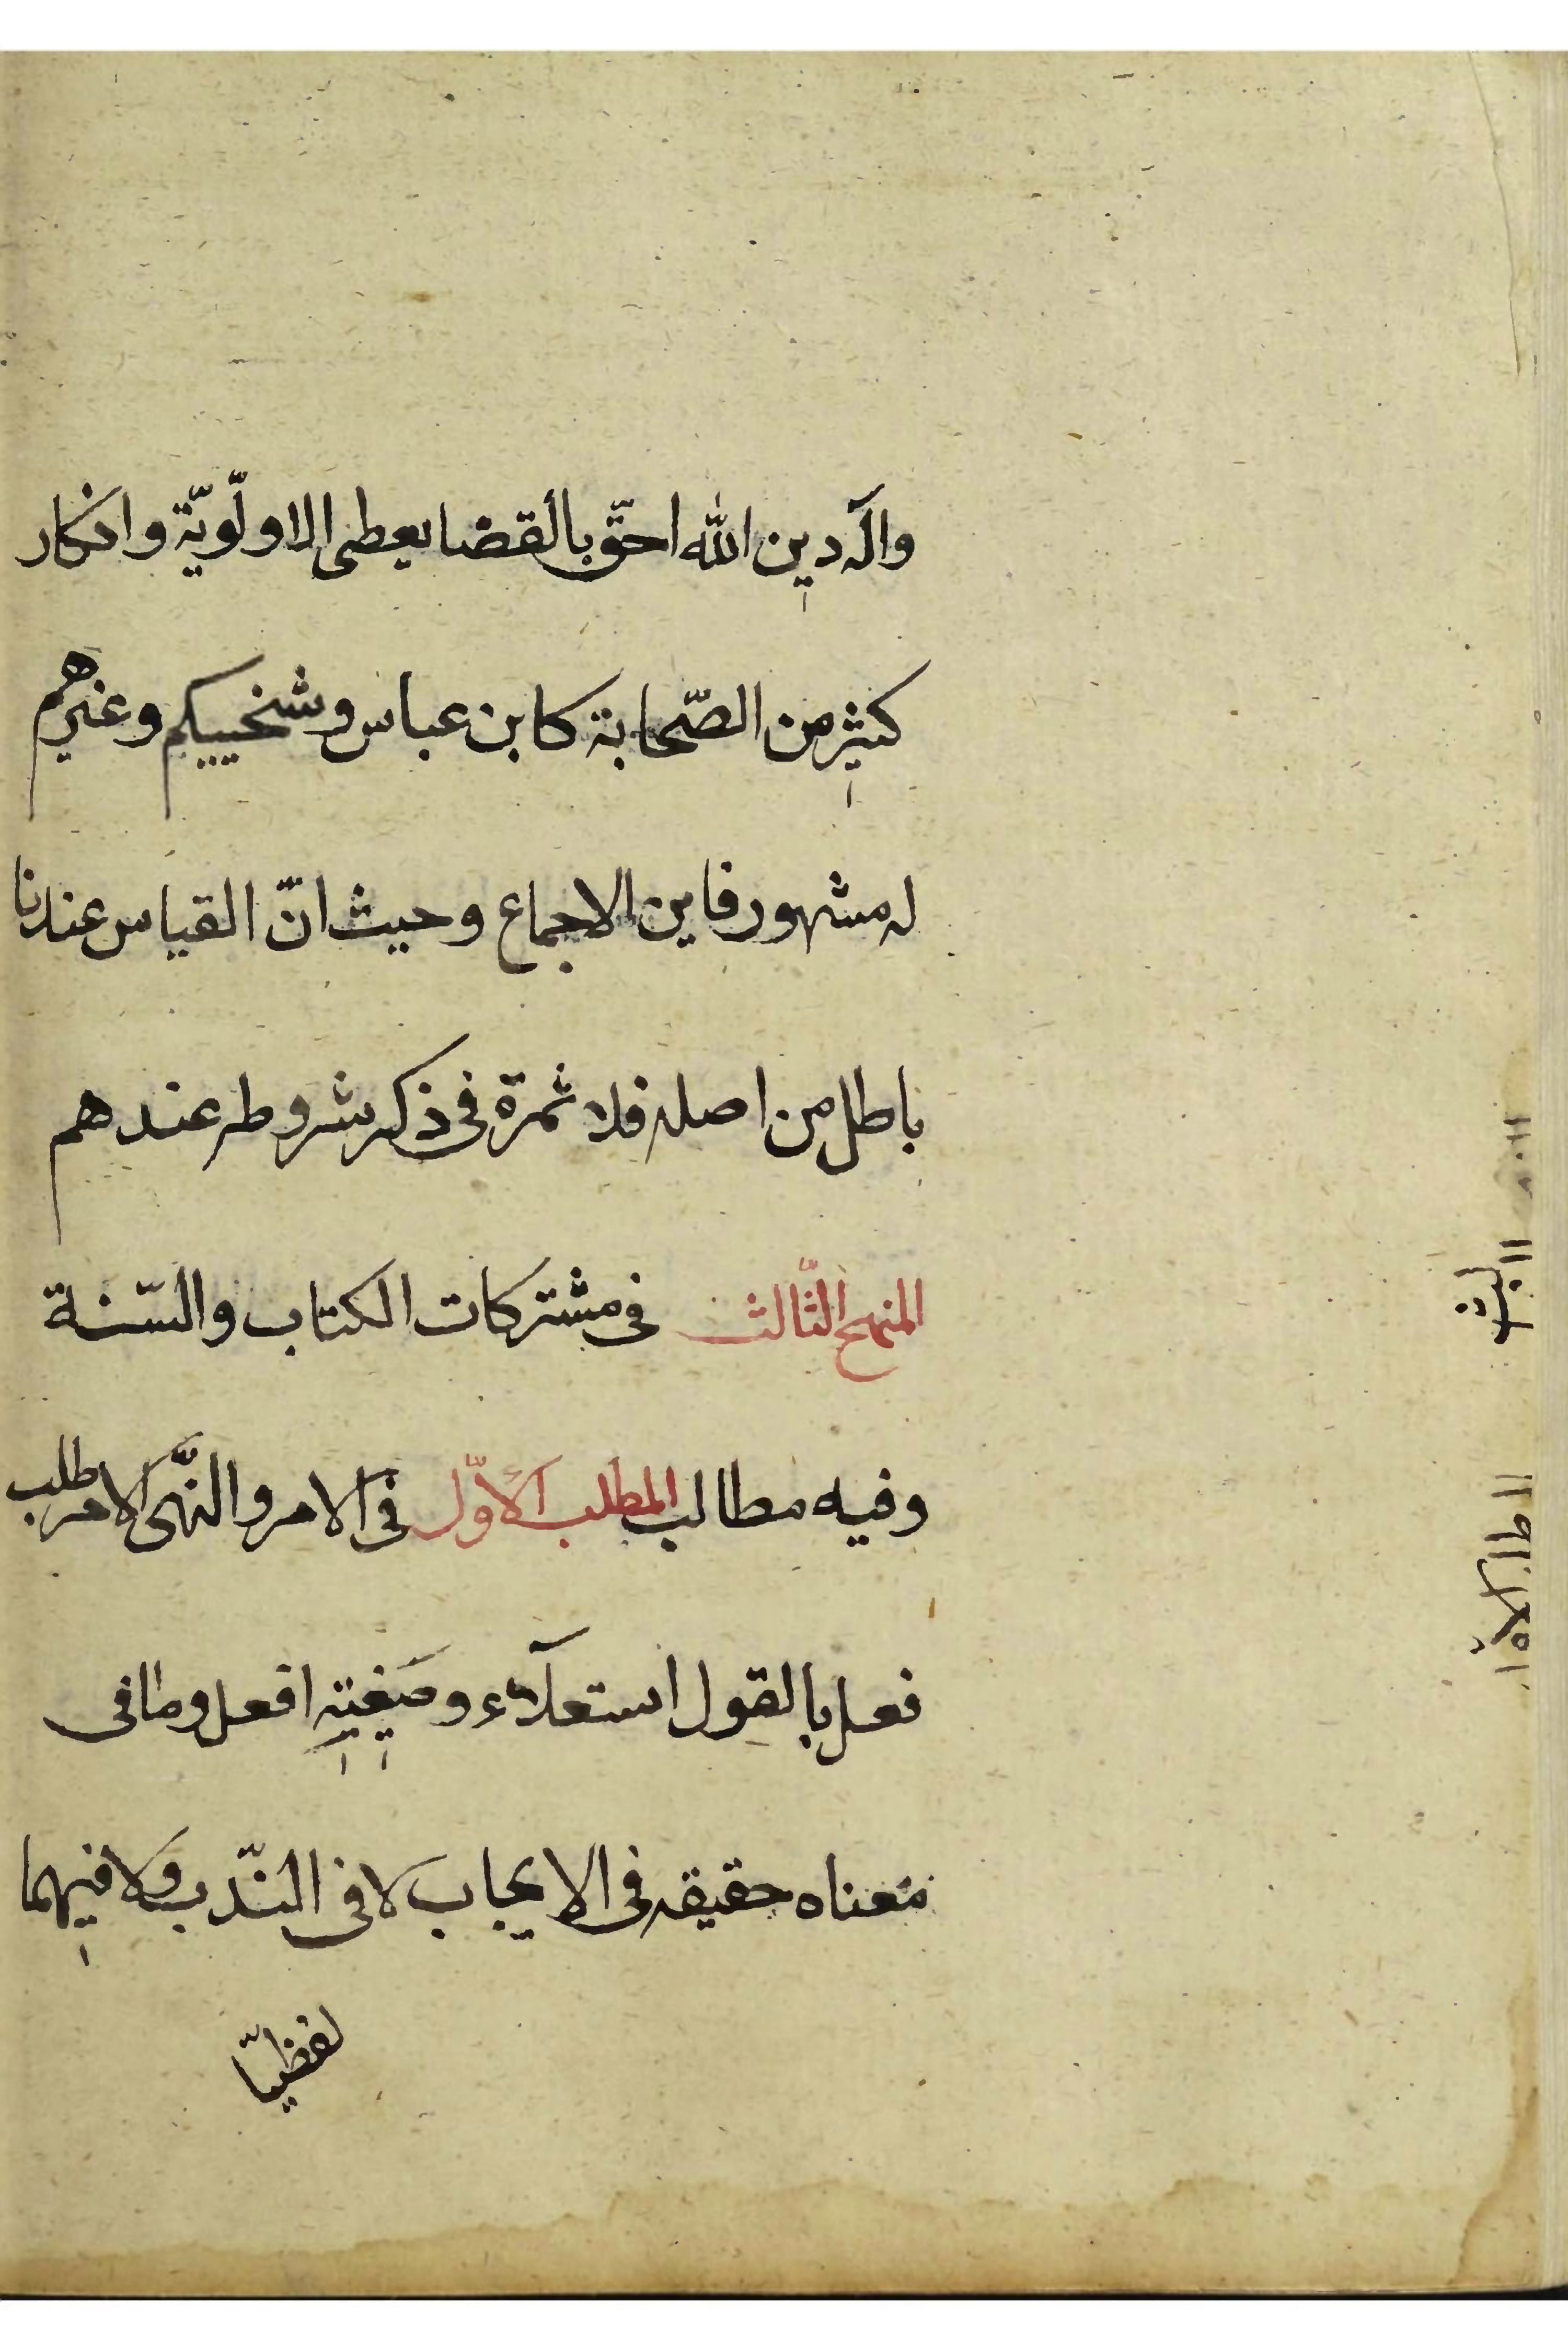 والّه دين الله احقّ بالقضا يعطى الاولويّة وانكار
كثير من الصّحابة كابن عباس وشخييكم وغيرهم
له مشهور فاين الاجماع وحيث انّ القياس عندنا
باطل من اصله فلا ثمرة فى ذكر شروطه عندهم
المنهج الثّالث فى مشتركات الكتاب والسّنة
وفيه مطالب المطلب الاوّل فى الامر والنّهى الامر طلب
فعل بالقول استعلآء وصيغته افعل وما فى
معناه حقيقه فى الايجاب لا فى النّدب ولا فيهما
لفظيّا